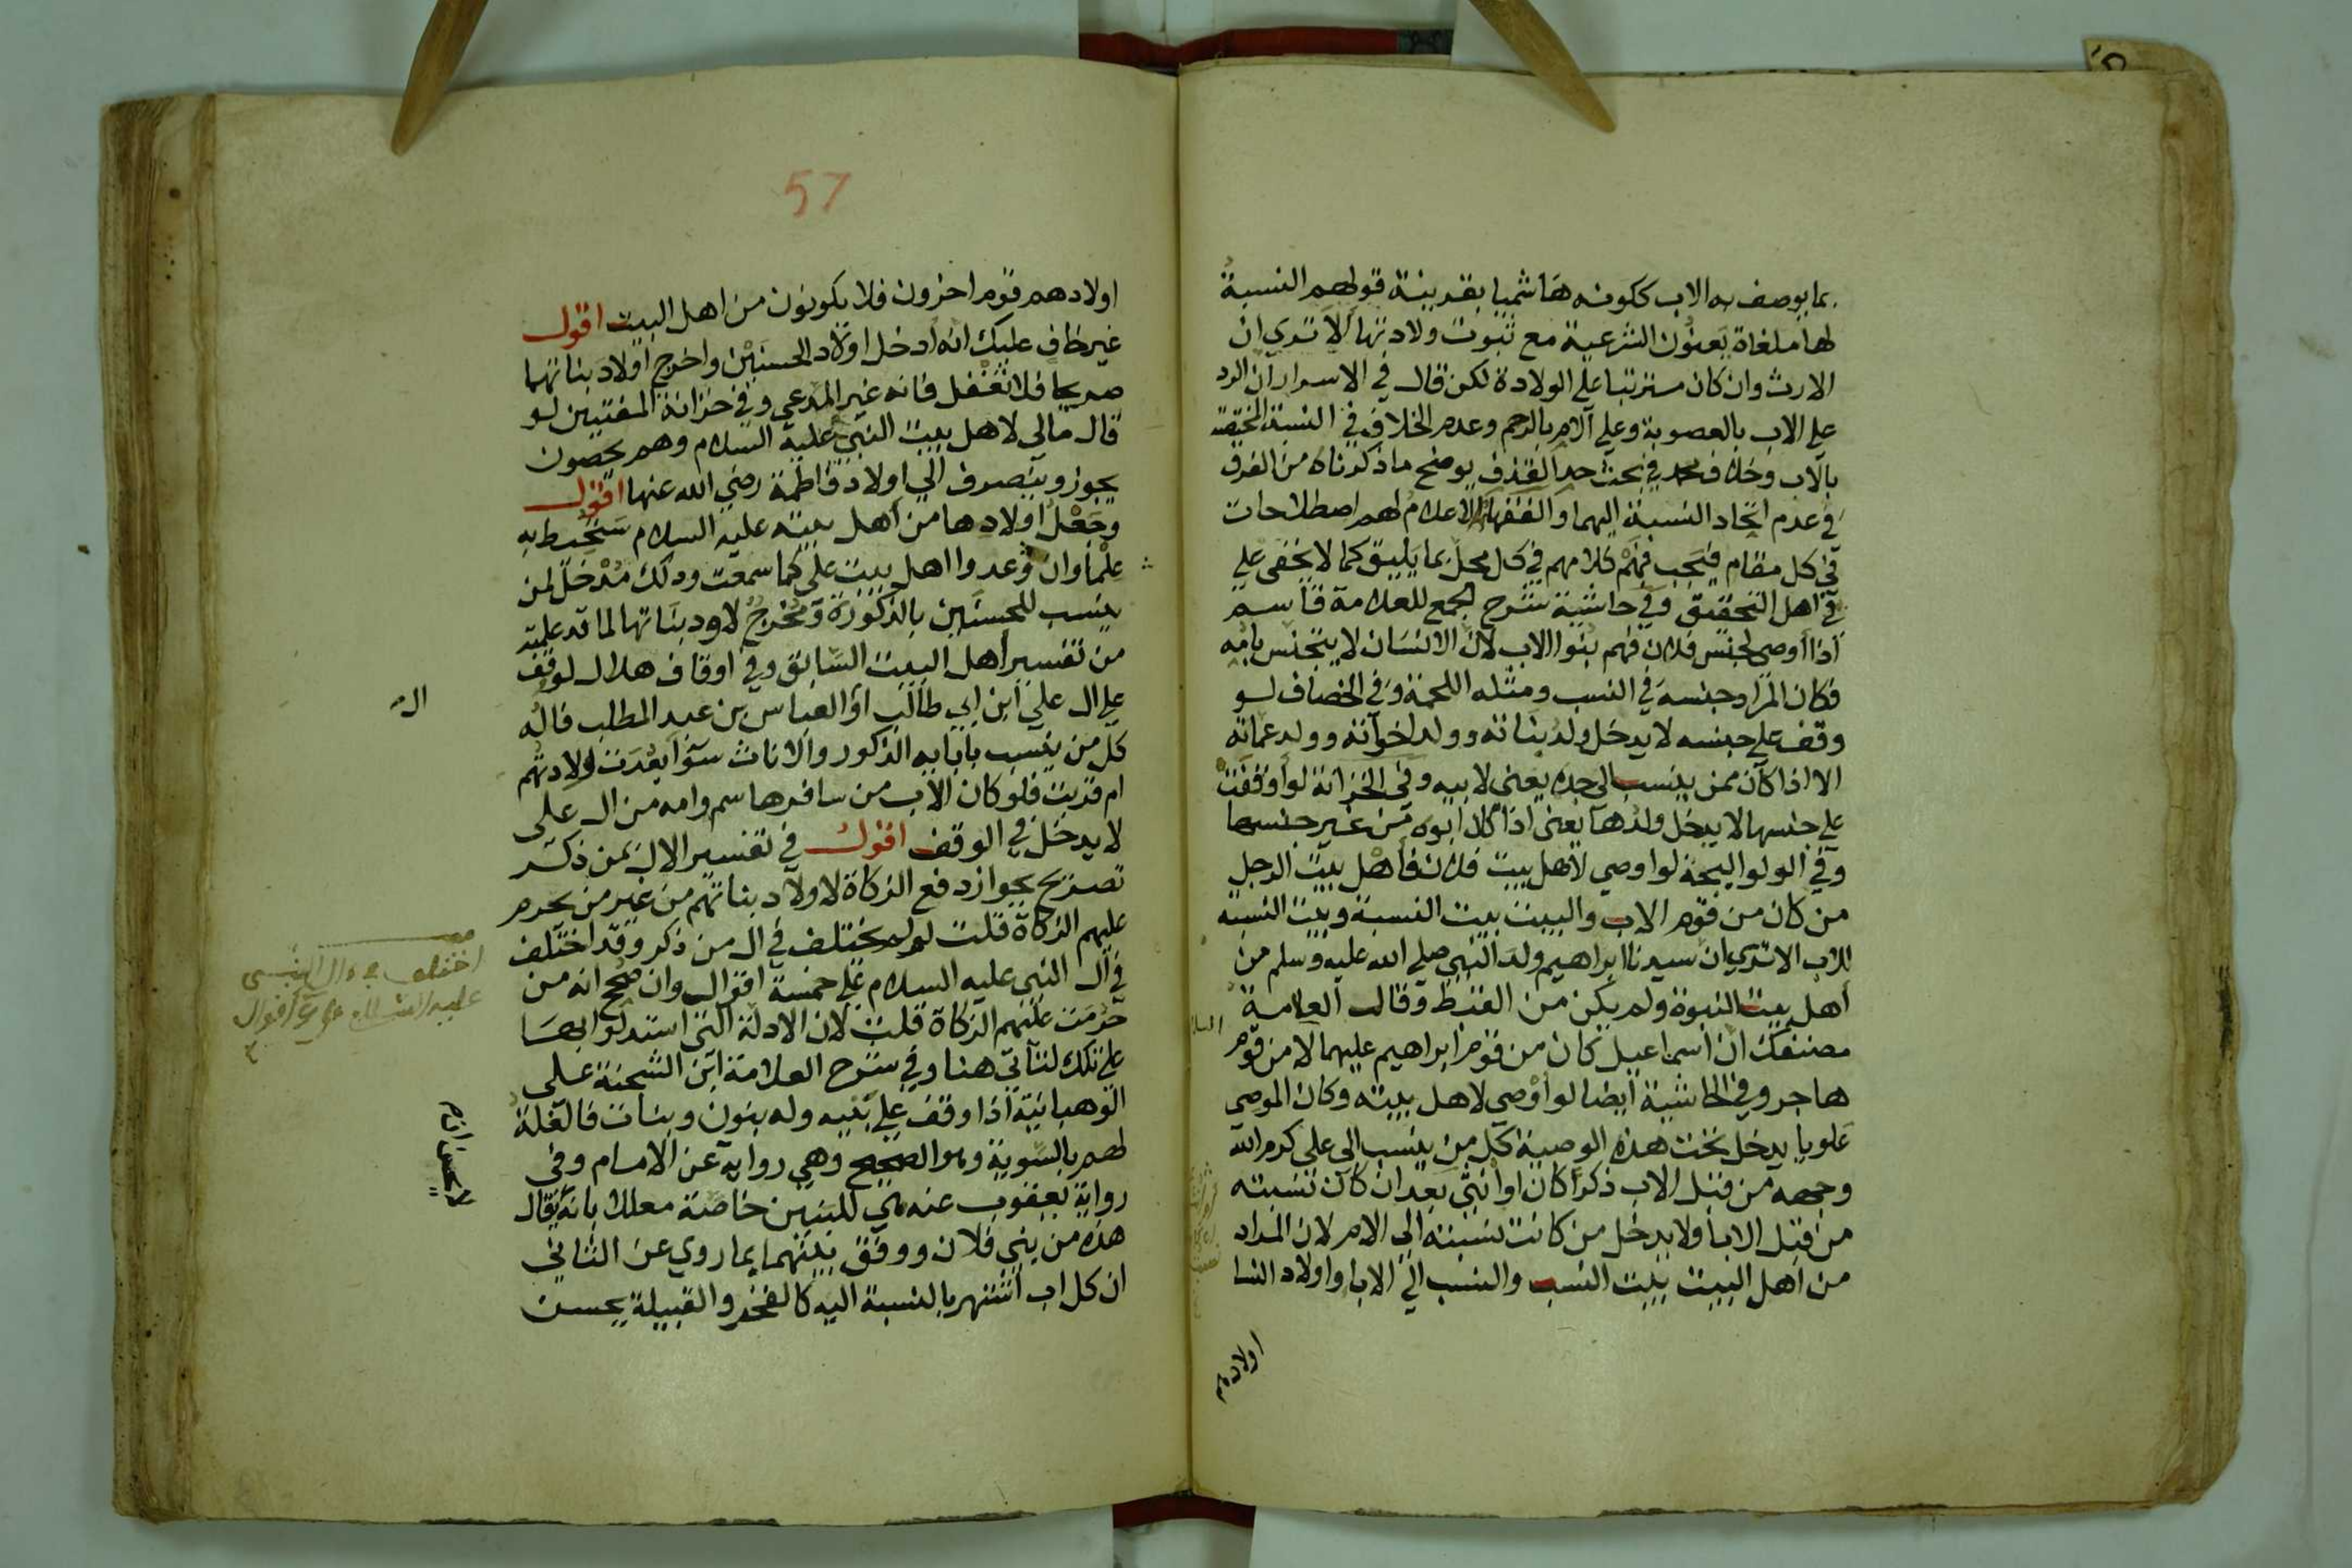 بما يوصف به الاب ككونه هاشميا بقرينة قولهم النسبة
لها ملغاة يعنون الشرعية مع ثبوت ولادتها الا ترى ان
الارث وان كان مترتبا على الولادة لكن قال في الاسرار ان الرد
على الاب بالعصوبة وعلى الام بالرحم وعدم الخلاف في النسبة
بالاب وخلاف محمد في بحث حد القذف يوضح ما ذكرناه من الفرق
في عدم اتحاد النسبة اليهما والفقهاء الاعلام لهم اصطلاحات
في كل مقام فيجب فهم كلامهم في كل محل بما يليق كما لا يخفى على
اهل التحقيق وفي حاشية شرح المجمع للعلامة قاسم
اذا اوصى لجنس فلان فهم بنوا الاب لان الانسان لا يتجنس بامه
فكان المراد جنسه في النسب ومثله اللحمة وفي الخصاف لو
وقف على جنسه لا يدخل ولد بناته وولد اخواته وولد عماته
الا اذا كان ممن ينسب الى جده يعني لابيه وفي الخزانة لو اوقفت
على جنسها لا يدخل ولدها يعني اذا كان ابوه من غير جنسها
وفي الولوالجية لو اوصى لاهل بيت فلان فاهل بيت الرجل
من كان من قوم الاب والبيت بيت النسبة وبيت النسبة
للاب الا ترى ان سيدنا ابراهيم ولد النبي صلى الله عليه وسلم من
اهل بيت النبوة ولم يكن من القبط وقال العلامة
مصنفك ان اسماعيل كان من قوم ابراهيم عليهما لا من قوم
السلام
هاجر وفي الحاشية ايضا لو اوصى لاهل بيته وكان الموصي
علويا يدخل تحت هذه الوصية كل من ينسب الى علي كرم الله
وجهه من قبل الاب ذكرا كان او انثى بعد ان كان نسبته
من قبل الابا ولا يدخل من كانت نسبته الى الام لان المراد
من اهل البيت بيت النسب والنسب الى الابا واولاد النسا
اولادهم
57
اولادهم قوم اخرون فلا يكونون من اهل البيت اقول
غير خاف عليك انه ادخل اولاد الحسنين واخرج اولاد بناتهما
صريحا فلا تغفل فانه غير المدعى وفي خزانة المفتيين لو
قال مالي لاهل بيت النبي عليه السلام وهم يحصون
يجوز وينصرف الى اولاد فاطمة رضي الله عنها اقول
وجعل اولادها من اهل بيته عليه السلام ستحيط به
علما وان عدوا اهل بيت علي كما سمعت وذلك مدخل لمن
ينسب للحسنين بالذكورة ومخرج لاولاد بناتها لما قد علمته
من تفسير اهل البيت السابق وفي اوقاف هلال لو وقف
على ال علي ابن ابي طالب او العباس بن عبد المطلب فاله
ال
كل من ينسب بابائه الذكور والاناث سوا بعدت ولادتهم
ام قربت فلو كان الاب من سائر هاشم وامه من ال علي
لا يدخل في الوقف اقول في تفسير الال بمن ذكر
تصريح بجواز دفع الزكاة لاولاد بناتهم من غير من يحرم
عليهم الزكاة قلت لو لم يختلف في ال من ذكر وقد اختلف
في ال النبي عليه السلام على خمسة اقوال وان صحح انه من
اختلف في ال النبي
عليه السلام على اقوال
حرمت عليهم الزكاة قلت لان الادلة التي استدلوا بها
على تلك لتأتي هنا وفي شرح العلامة ابن الشحنة على
الوهبانية اذا وقف على بنيه وله بنون وبنات فالغلة
لهم بالسوية وهو الصحيح وهي رواية عن الامام وفي
رواية يعقوب عنه هي للبنين خاصة معللا بانه يقال
هذه من بني فلان ووفق بينهما بما روي عن الثاني
ان كل اب اشتهر بالنسبة اليه كالفخذ والقبيلة يحسن